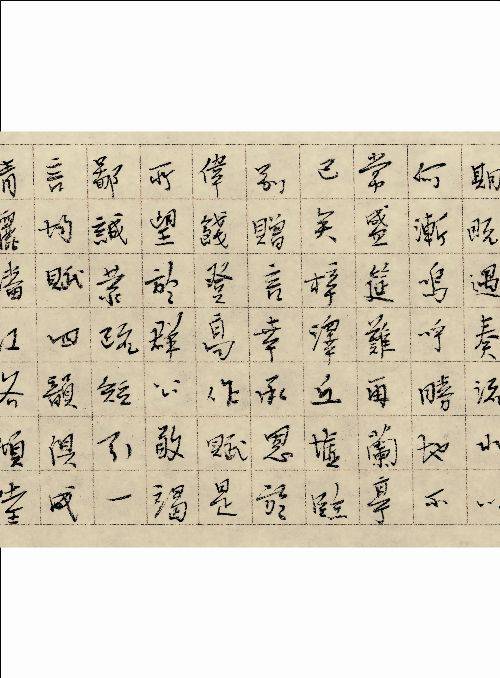 期既遇奏流水以
何慚嗚呼勝地不
常盛筵難再蘭亭
已矣梓澤丘墟臨
別贈言幸承恩於
偉餞登高作賦是
所望於群公敢竭
鄙誠恭疏短引一
言均賦四韻俱成
請灑潘江各傾陸